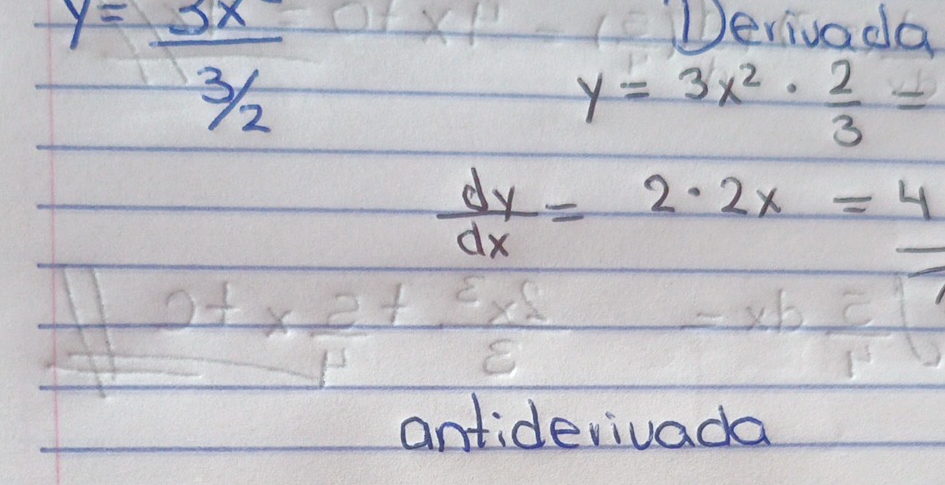 y = 3x / 3/2
Derivada
y = 3x² · 2/3 =
dy/dx = 2 · 2x = 4
antiderivada